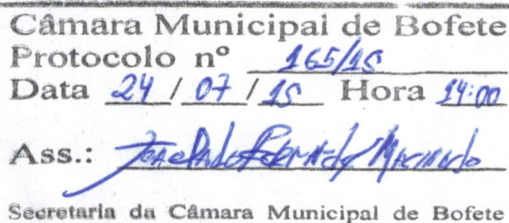 Câmara Municipal de Bofete
Protocolo nº 165/15
Data 24 / 07 / 15 Hora 14:00
Ass.:
Secretaria da Câmara Municipal de Bofete